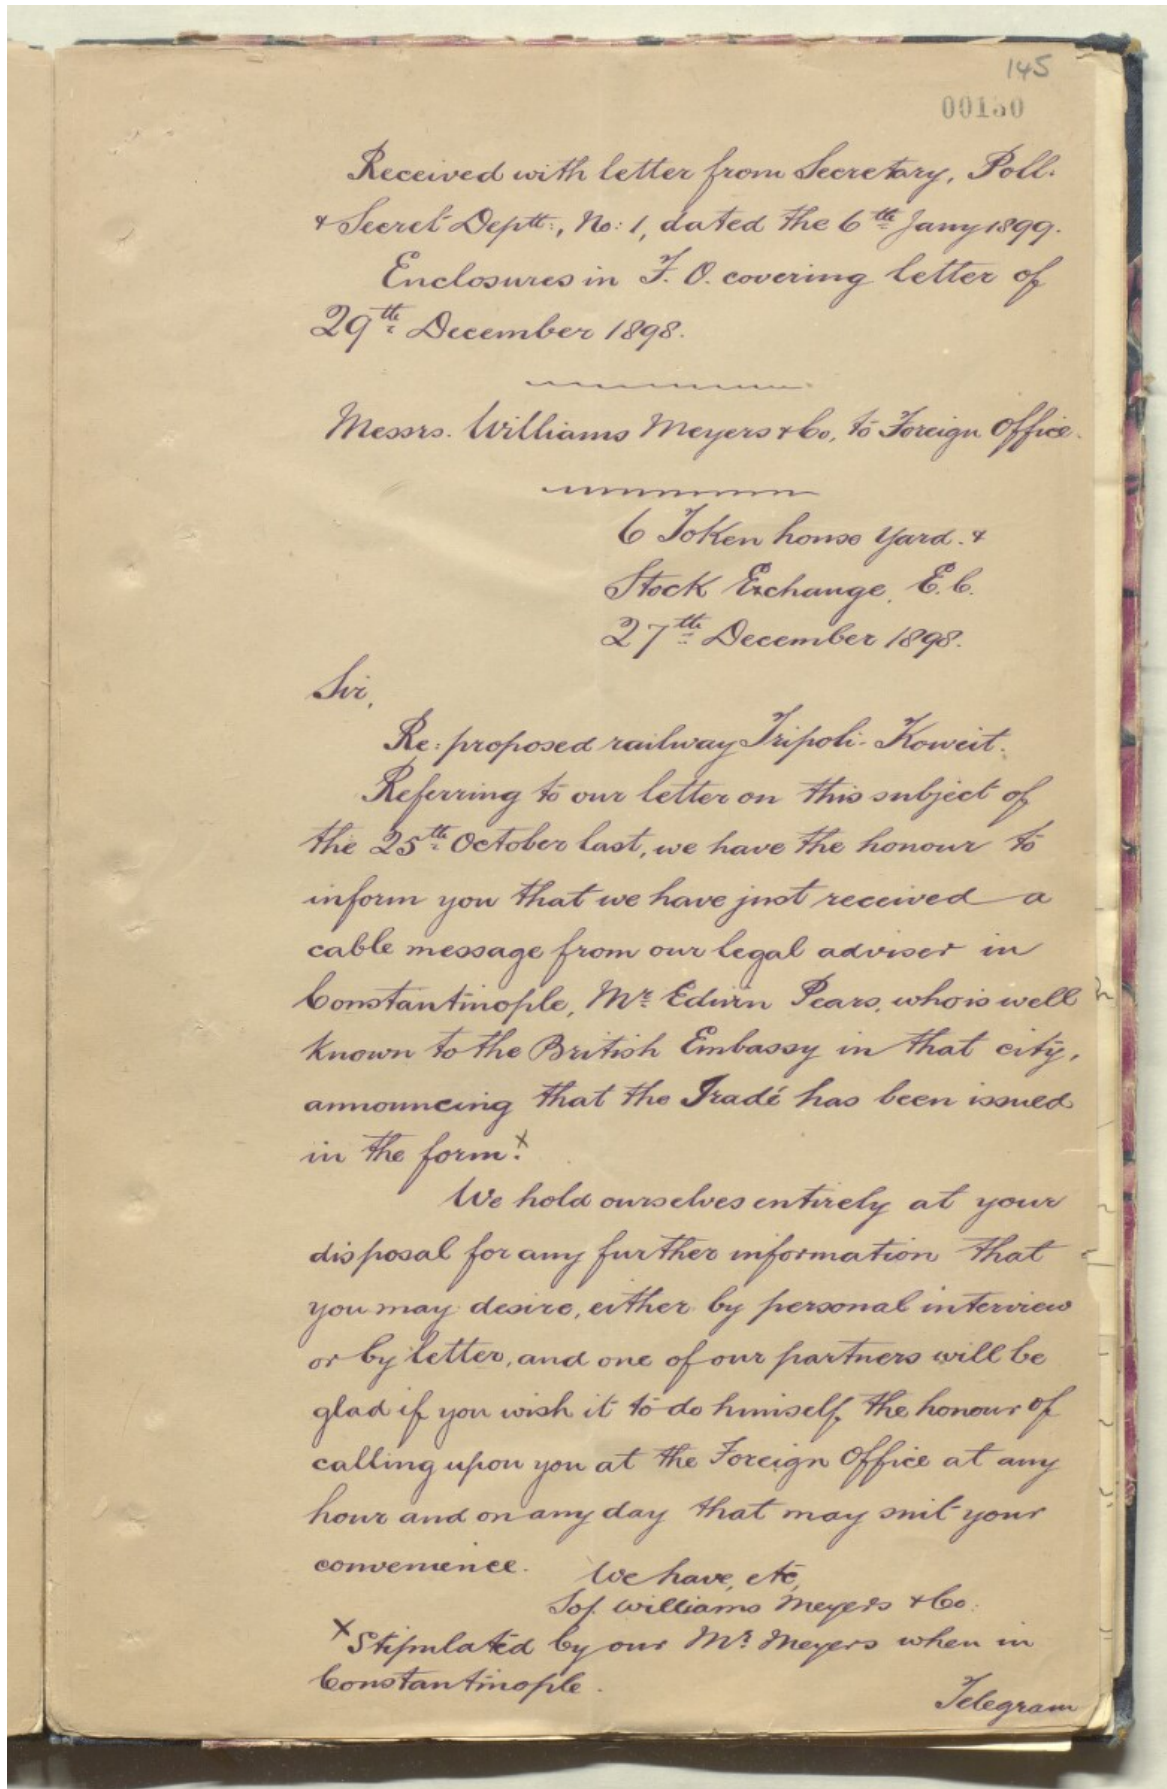 145
00130
Received with letter from Secretary, Poll.
& Secret Deptt:, No: 1, dated the 6th Jany 1899.
Enclosures in F. O. covering letter of
29th December 1898.
Messrs. Williams Meyers & Co, to Foreign Office.
6 Token house Yard. &
Stock Exchange, E.C.
27th December 1898.
Sir,
Re: proposed railway Tripoli-Koweit.
Referring to our letter on this subject of
the 25th October last, we have the honour to
inform you that we have just received a
cable message from our legal adviser in
Constantinople, Mr Edwin Pears, who is well
known to the British Embassy in that city,
announcing that the Iradé has been issued
in the form. x
We hold ourselves entirely at your
disposal for any further information that
you may desire, either by personal interview
or by letter, and one of our partners will be
glad if you wish it to do himself the honour of
calling upon you at the Foreign Office at any
hour and on any day that may suit your
convenience. We have, etc,
Williams Meyers & Co.
x Stipulated by our Mr Meyers when in
Constantinople.
Telegram